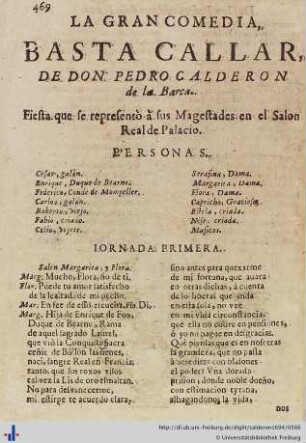 469
LA GRAN COMEDIA,
BASTA CALLAR,
DE DON PEDRO CALDERON
de la Barca.
Fiesta que se representò à sus Magestades en el Salon
Real de Palacio.
PERSONAS.
Cesar, galàn.
Enrique, Duque de Bearne.
Federico, Conde de Mompeller.
Carlos, galan.
Roberto, viejo.
Fabio, criado.
Celio, vejete.
Serafina, Dama.
Margarita, Dama.
Flora, Dama.
Capricho, Gracioso.
Estela, criada.
Nise, criada.
Musicos.
JORNADA PRIMERA.
Salen Margarita, y Flora.
Marg. Mucho, Flora, fio de ti,
Flor. Puede tu amor satisfecho
de la lealtad de mi pecho.
Mar. En fee de essa escucha. Flo. Di,
Marg. Hija de Enrique de Fox,
Duque de Bearne, y Rama
de aquel sagrado Laurel,
que viò la Conquista sacra
ceñir de Bullon las sienes,
nací, sangre Real de Francia;
tanto, que sus roxos
valos vez Lis de oro esmaltan.
No para desvanecerme,
mi estirpe te acuerdo clara,
sino antes para quexarme
de mi fortuna, que avara
en otras dichas, à cuenta
de lo liberal que anda
en esta sola, no vee
en mi vida circunstancia,
que ella no cobre en pensiones,
ò yo no pague en desgracias.
Què piensas que es en nosotras
la grandeza, que no passa
à arrastrar con el alma
el poder? Vna dorada
prision, donde noble dueño
con estimacion tyrana,
alhagandonos la vida,
nos
http://dl.ub.uni-freiburg.de/diglit/calderon1694/0566
© Universitätsbibliothek Freiburg